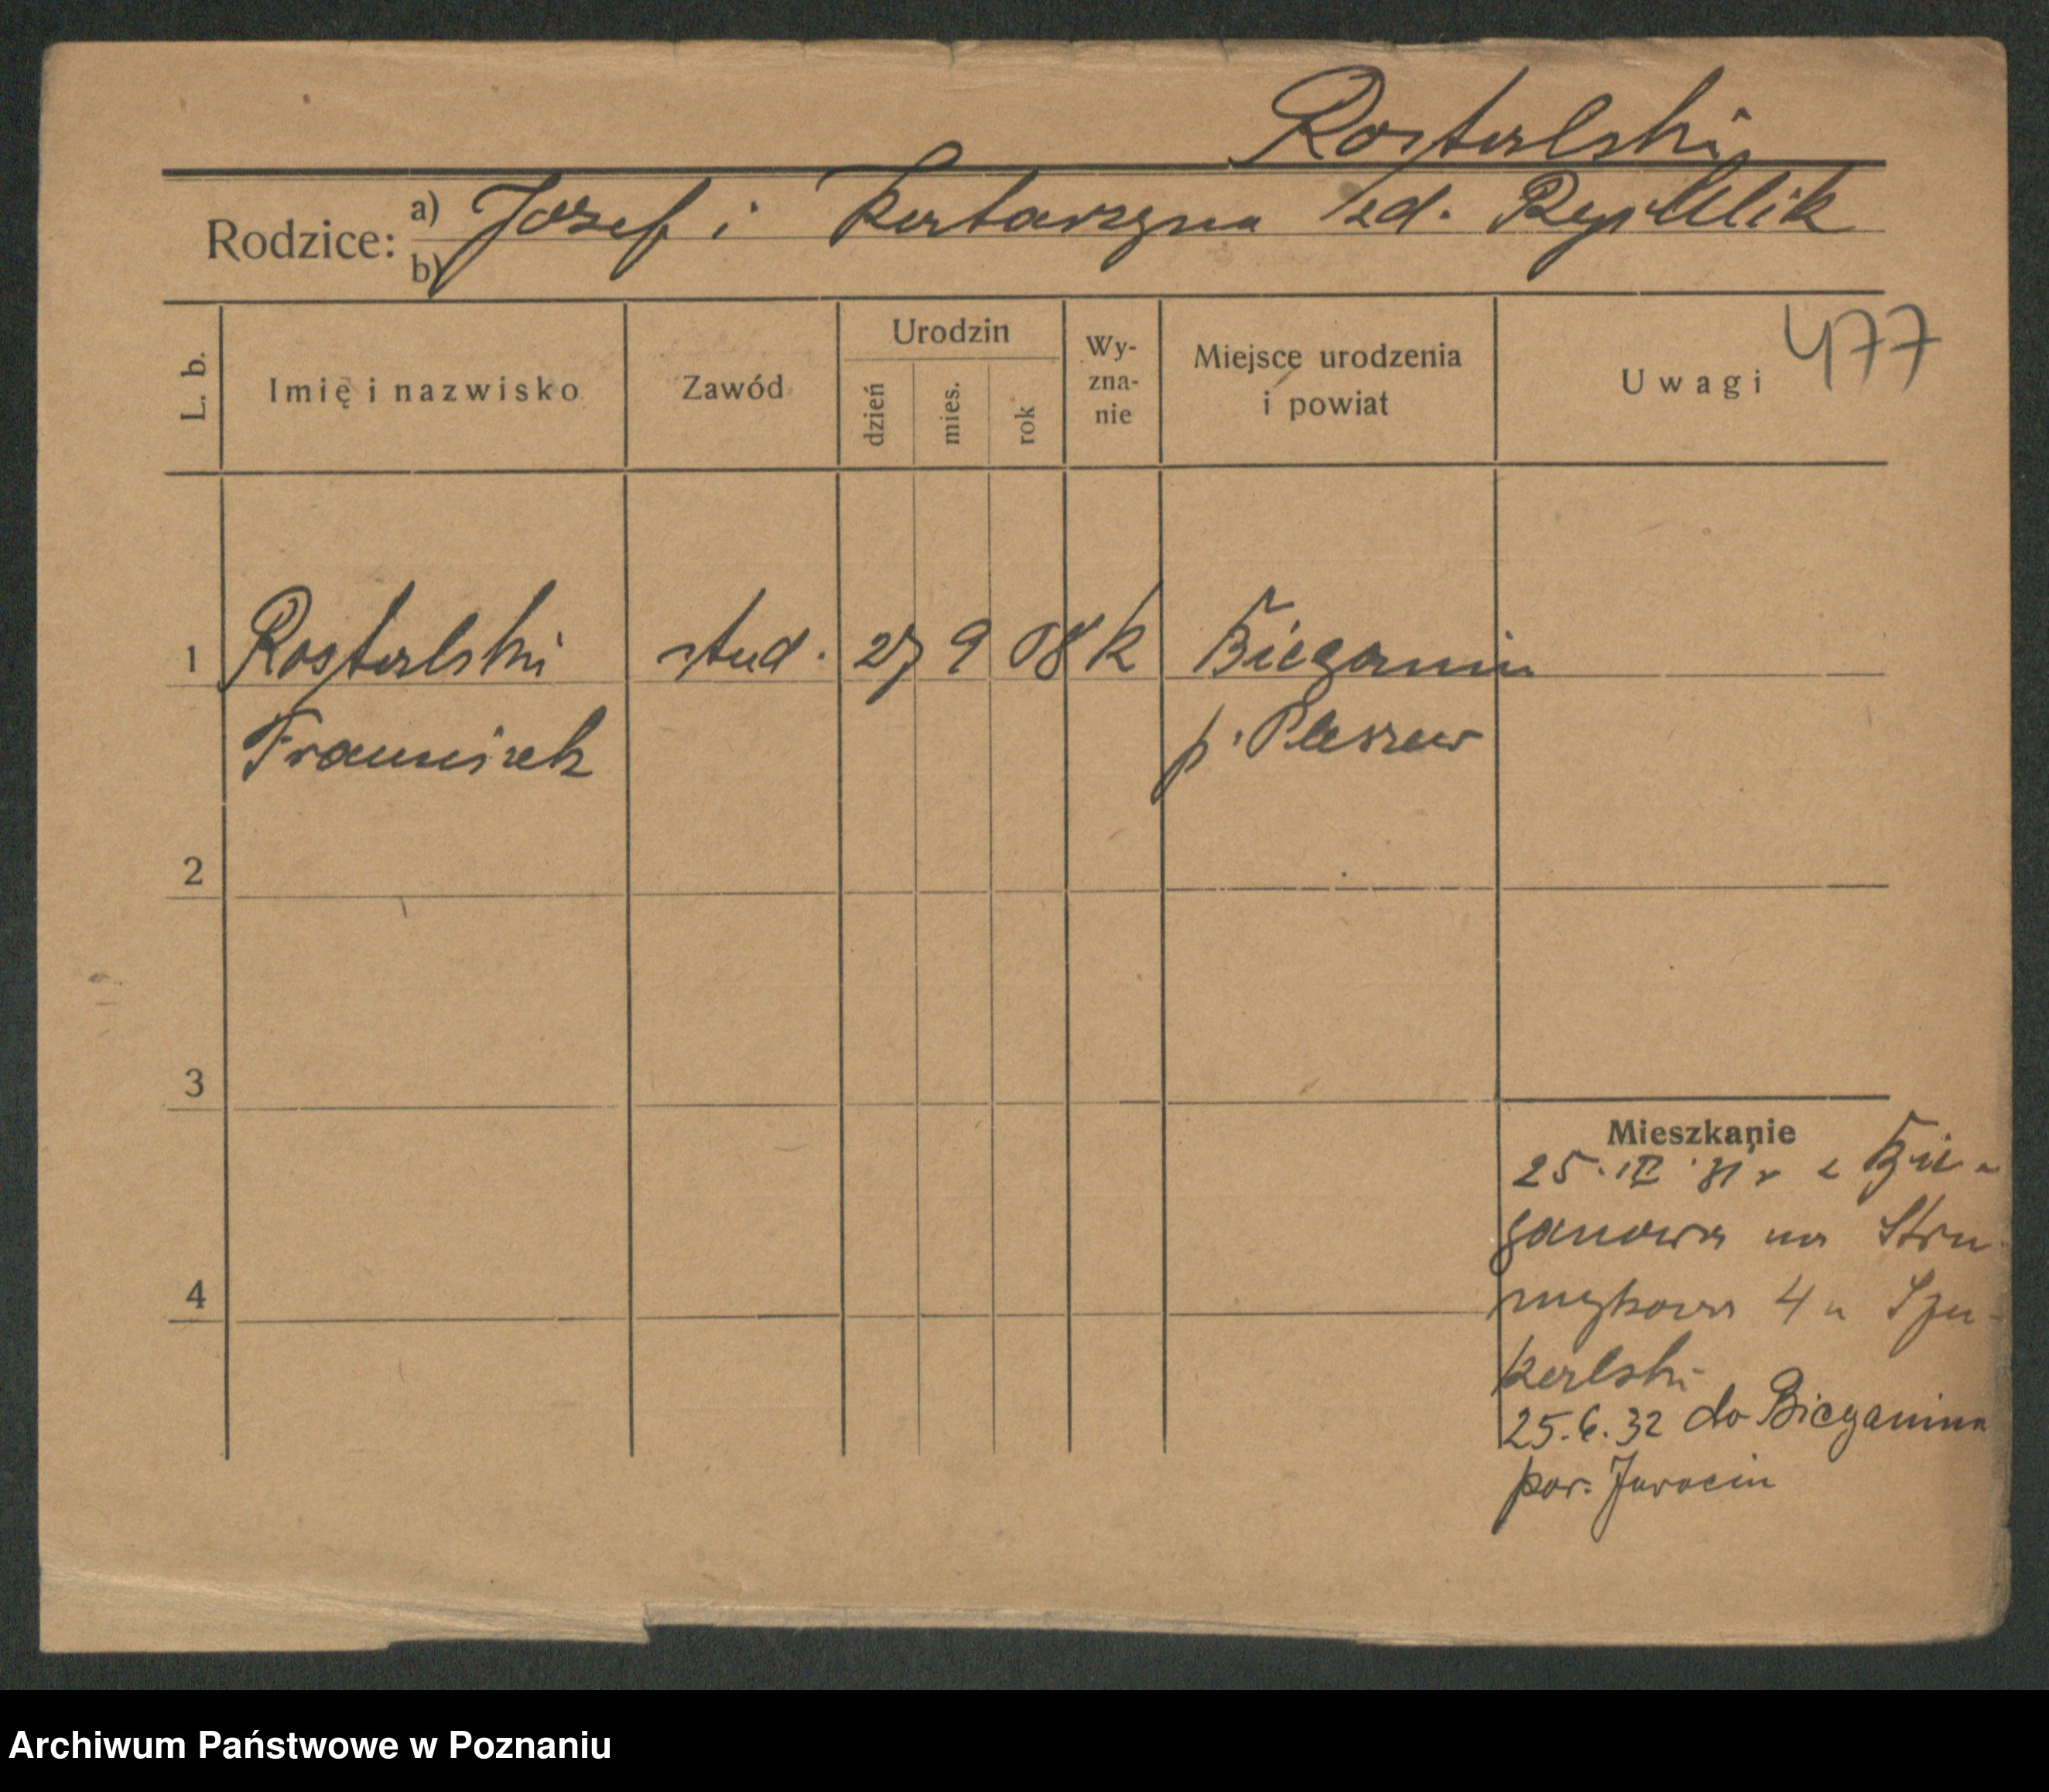 Rostalski
Rodzice: a) Józef i Katarzyna zd.
b)
477
L. b.
Imię i nazwisko
Zawód
Urodzin
dzień
mies.
rok
Wy-
zna-
nie
Miejsce urodzenia
i powiat
Uwagi
1 Rostalski stud. 27 9 08 k Bieganin
Franciszek p. Pleszew
2
3
4
Mieszkanie
25. 31 r z Bie-
ganowa na Stru
mykowa 4 u
25.6.32 do Bieganina
pow. Jarocin
Archiwum Państwowe w Poznaniu